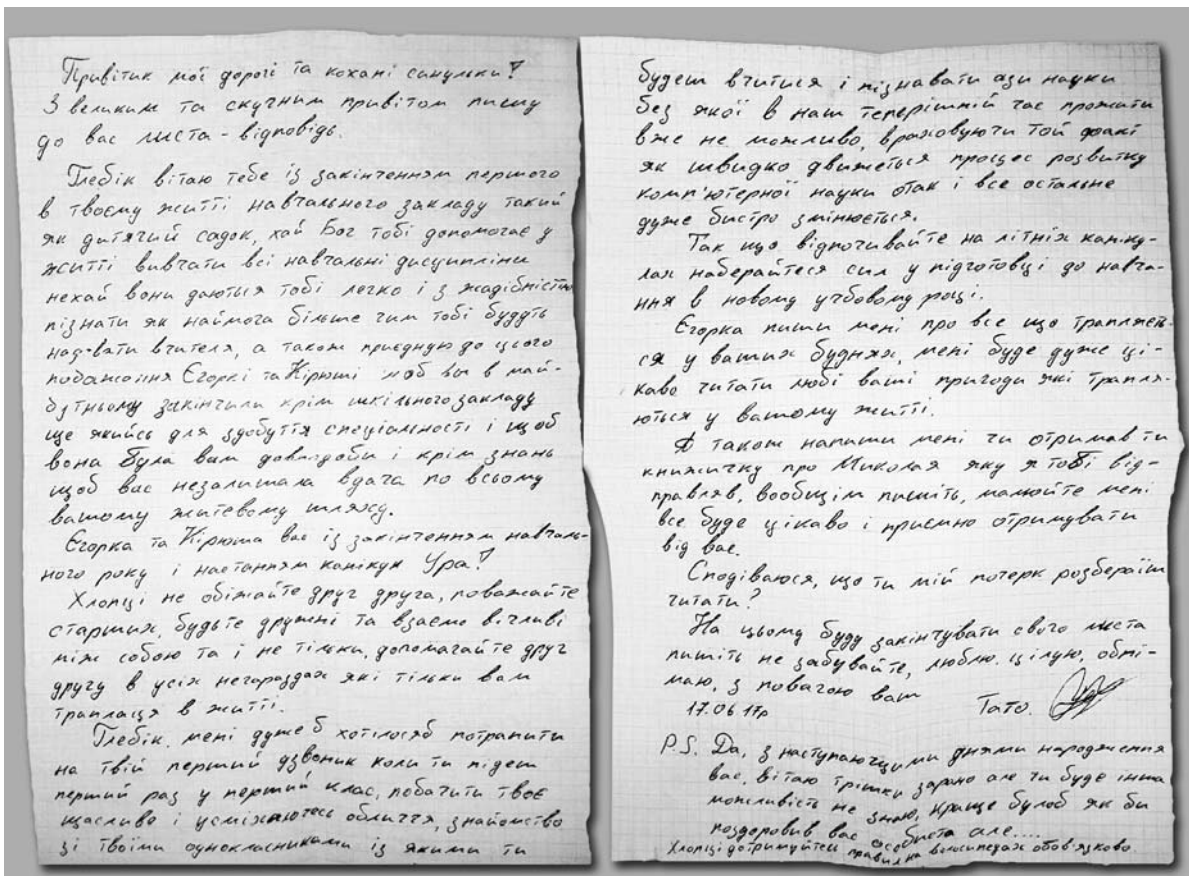 Привітик мої дорогі та кохані синульки!
З великим та скучним привітом пишу
до вас листа - відповідь.
Глебік вітаю тебе із закінченням першого
в твоєму житті навчального закладу такий
як дитячий садок, хай Бог тобі допомогає у
житті вивчати всі навчальні дисципліни
нехай вони даються тобі легко і з жадібністю
пізнати як наймога більше чим тобі будуть
надавати вчителя, а також приєдную до цього
побажання Єгоркі та Кірюші щоб ви в май-
бутньому закінчили крім шкільного закладу
ще якийсь для здобуття спеціальності і щоб
вона була вам довподоби і крім знань
щоб вас незалишала вдача по всьому
вашому житевому шляху.
Єгорка та Кірюша вас із закінченням навчаль-
ного року і настанням канікул Ура!
Хлопці не обіжайте друг друга, поважайте
старших, будьте дружні та взаємо вічливі
між собою та і не тільки, допомагайте друг
другу в усіх негараздах які тільки вам
трапляця в житті.
Глебік, мені дуже б хотілосяб потрапити
на твій перший дзвоник коли ти підеш
перший раз у перший клас, побачити твоє
щасливо і усміхаютесь обличчя, знайомство
зі твоїми однокласниками із якими ти
будеш вчитися і пізнавати ази науки
без якої в наш теперішній час прожити
вже не можливо, враховуючи той факт
як швидко движеться процес розвитку
комп'ютерної науки отак і все остальне
дуже бистро змінюється.
Так що, відпочивайте на літніх каніку-
лах наберайтеся сил у підготовці до навча-
ння в новому учбовому році.
Єгорка пиши мені про все що трапляєть-
ся у ваших буднях, мені буде дуже ці-
каво читати любі ваші пригоди які трапля-
ються у вашому житті.
А також напиши мені чи отримав ти
книжичку про Миколая яку я тобі від-
правляв, вообщім пишіть, малюйте мені
все буде цікаво і приємно отримувати
від вас.
Сподіваюся, що ти мій потерк розбераїш
читати?
На цьому буду закінчувати свого листа
пишіть не забувайте, люблю, цілую, обні-
маю, з повагою ваш
17.06.17р Тато.
P.S. Да, з наступаючими днями народження
вас, вітаю трішки зарано але чи буде інша
можливість не знаю, краще булоб як би
поздоровив вас особиста але....
Хлопці дотримуйтеся правил на велосипедах обов'язково.